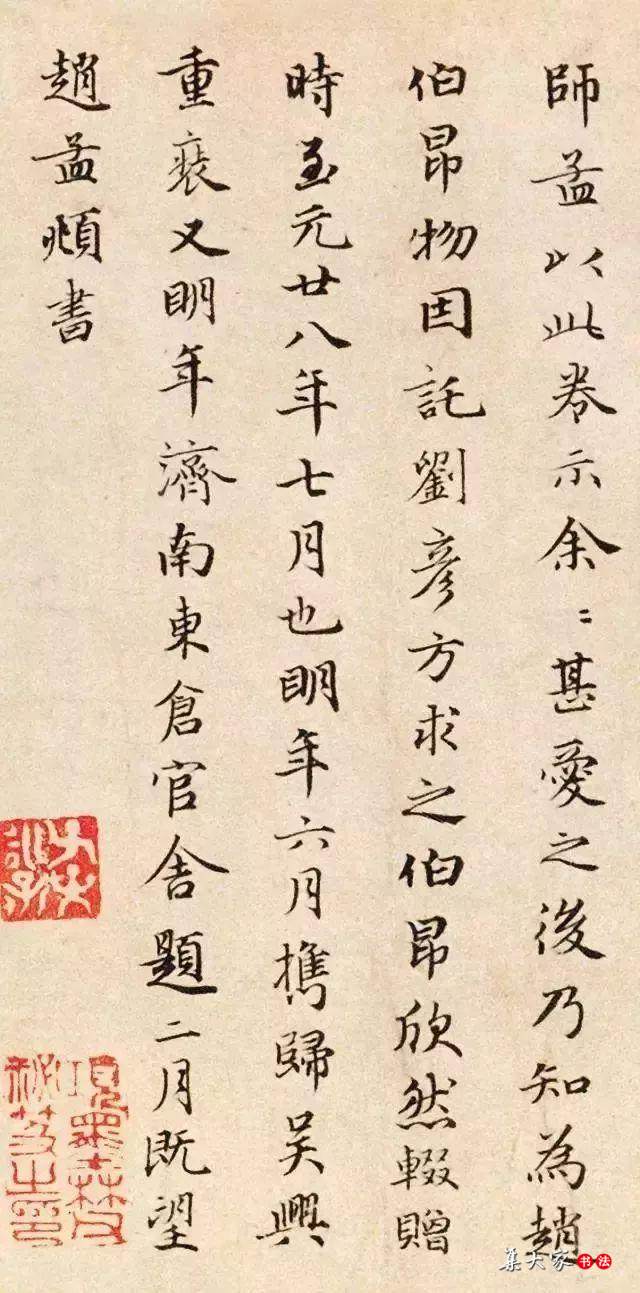 師孟以此卷示余〻甚愛之後乃知為趙
伯昂物因託劉彥方求之伯昂欣然輟贈
時至元廿八年七月也明年六月攜歸吳興
重裝又明年濟南東倉官舍題二月既望
趙孟頫書
項墨林父
秘笈之印
集大家書法